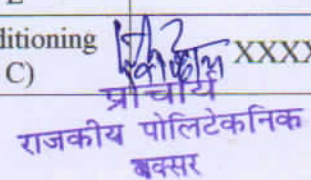 ditioning
C)
XXXX
प्राचार्य
राजकीय पोलिटेकनिक
बक्सर